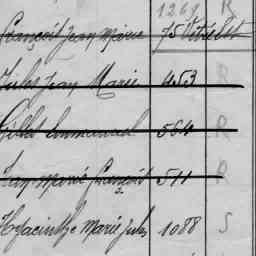 1269 R
François Jean Marie 75
Jules Jean Marie 453 R
Gillet Emmanuel 564 R
Jean Marie François 511 R
Hyacinthe Marie Jules 1088 S